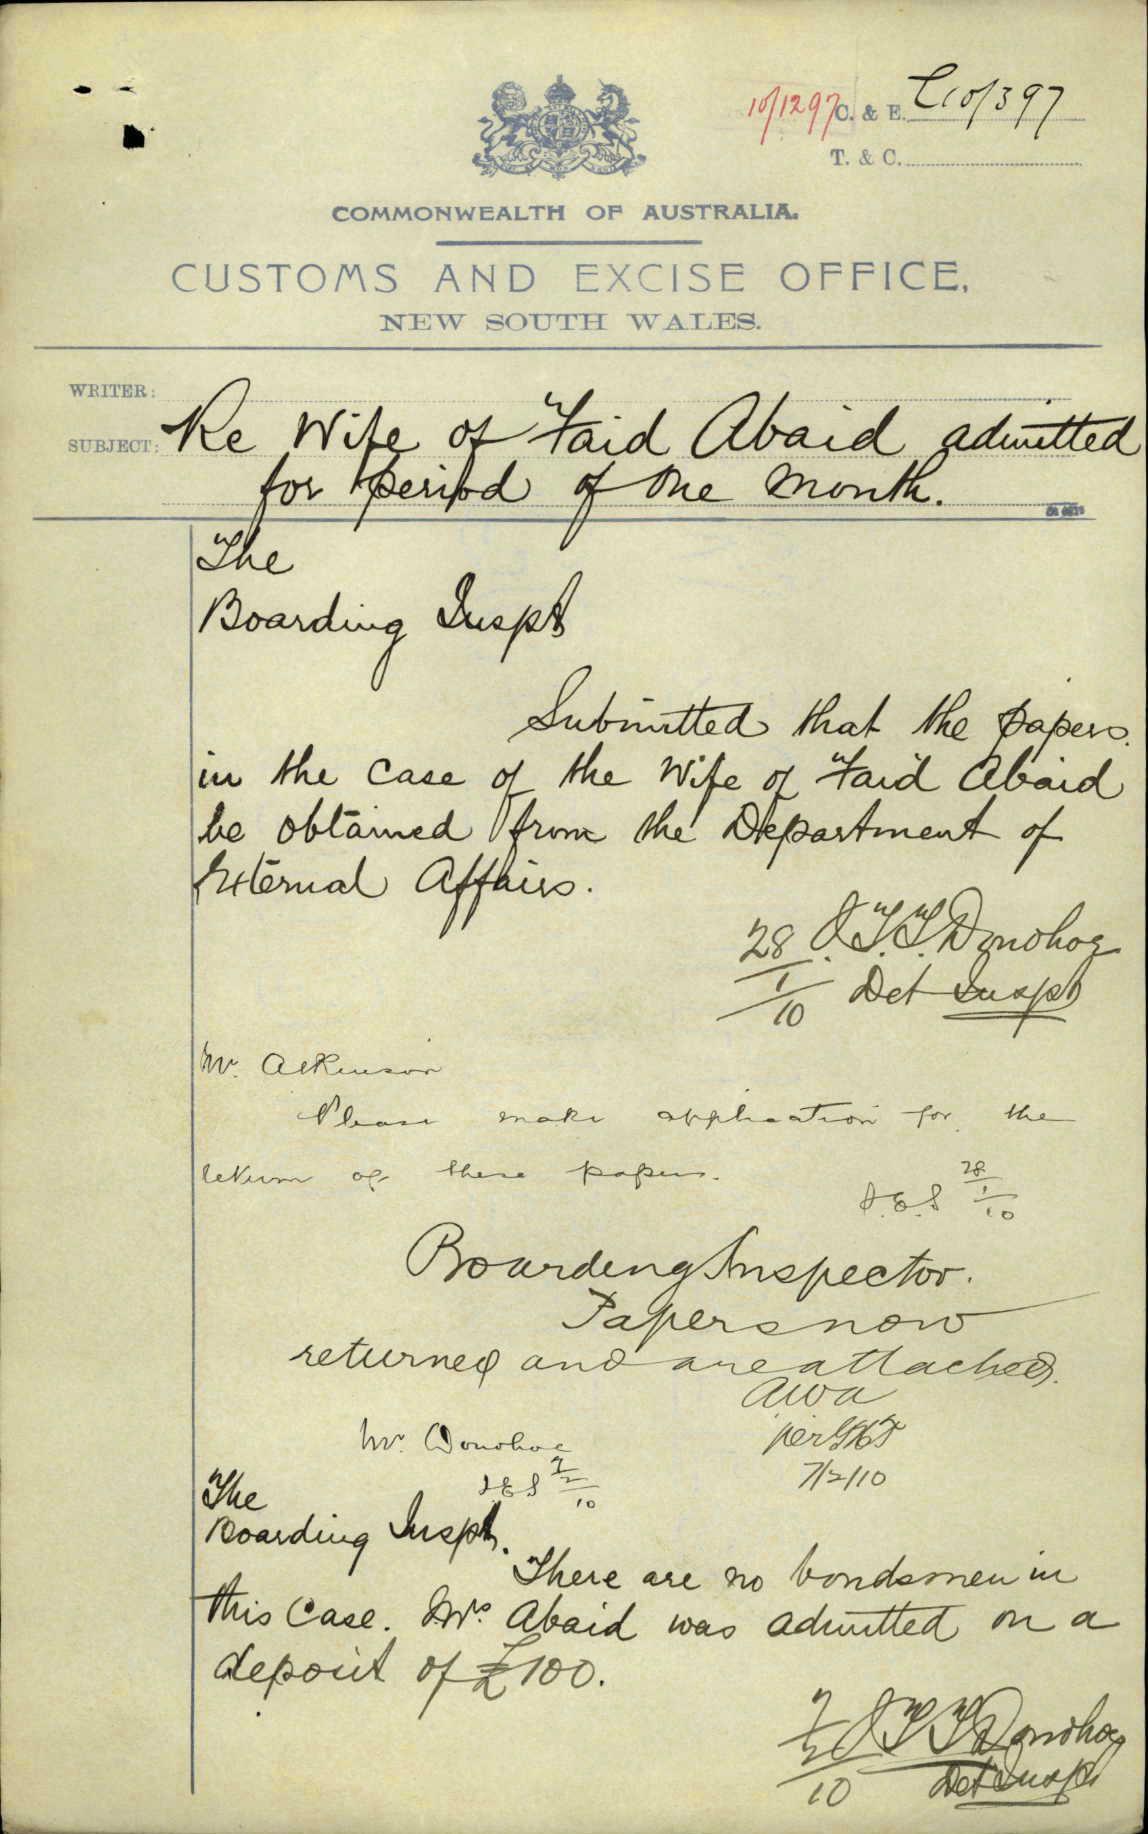 10/1297 C. & E. C10/397
T. & C.
COMMONWEALTH OF AUSTRALIA.
CUSTOMS AND EXCISE OFFICE,
NEW SOUTH WALES.
WRITER:
SUBJECT: Re Wife of Faid Abaid admitted
for period of one month.
The
Boarding Inspr
Submitted that the papers
in the case of the Wife of Faid Abaid
be obtained from the Department of
External Affairs.
28/1/10 J.T.T. Donohoe
Det Inspr
Mr. Atkinson
Please make application for the
return of these papers.
J.E.S 28/1/10
Boarding Inspector.
Papers now
returned and are attached.
AWA
per
7/2/10
Mr. Donohoe
J.E.S 7/2/10
The
Boarding Inspr.
There are no bondsmen in
this case. Mrs. Abaid was admitted on a
deposit of £100.
7/2/10 J T T Donohoe
Det Inspr